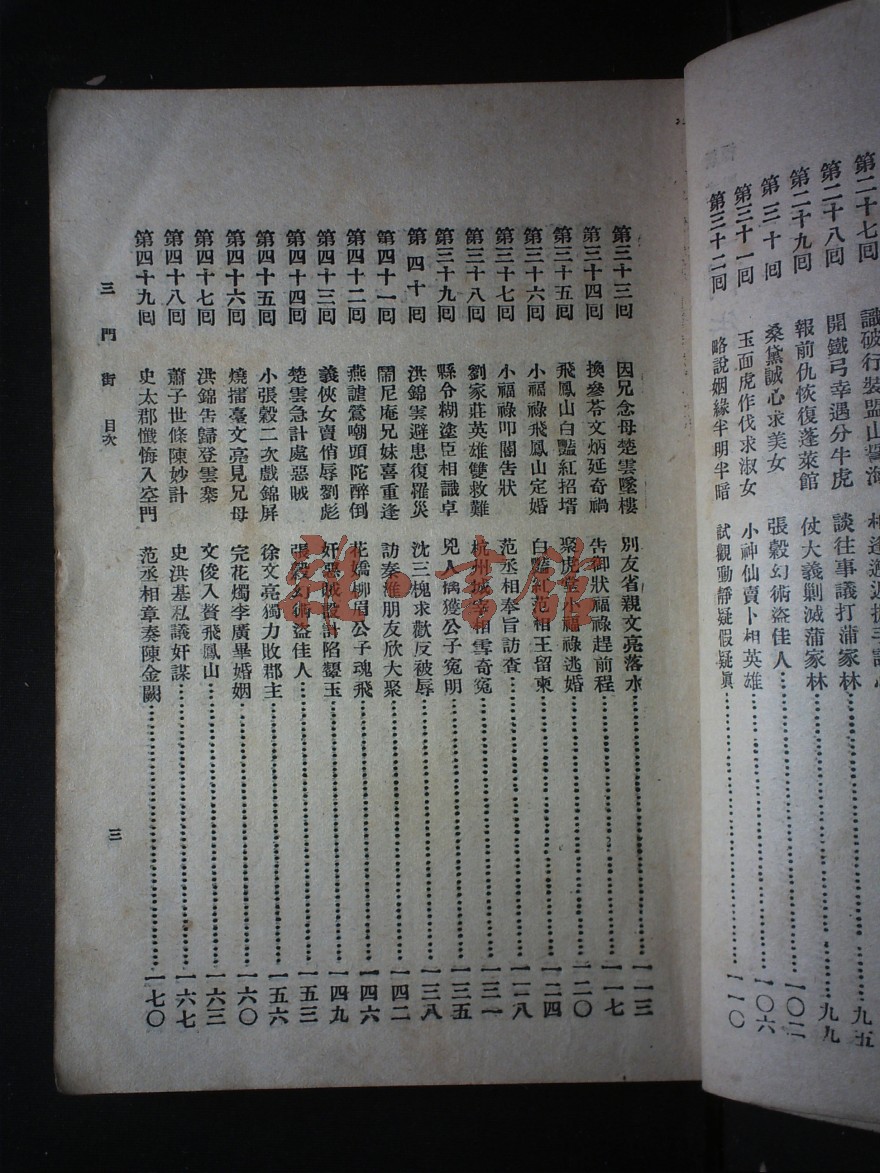 第二十七回 識破行裝盟山誓海
第二十八回 開鐵弓幸遇分牛虎 談往事議打蒲家林 九九
第二十九回 報前仇恢復蓬萊館 仗大義剿滅蒲家林 九九
第三十回 桑黛誠心求美女 張穀幻術盜佳人 一〇二
第三十一回 玉面虎作伐求淑女 小神仙賣卜相英雄 一〇六
第三十二回 略說姻緣半明半暗 試觀動靜疑假疑眞 一一〇
第三十三回 因兄念母楚雲墜樓 別友省親文亮落水 一一三
第三十四回 換參苓文炳延奇禍 告御狀福祿趕前程 一一七
第三十五回 飛鳳山白豔紅招壻 聚虎堂小福祿逃婚 一二〇
第三十六回 小福祿飛鳳山定婚 白豔紅范相王留柬 一二四
第三十七回 小福祿叩閽告狀 范丞相奉旨訪查 一二八
第三十八回 劉家莊英雄雙救難 杭州城宰相雪奇冤 一三一
第三十九回 縣令糊塗臣相識卓 兇人偶獲公子寃明 一三五
第四十回 洪錦雲避患復罹災 沈三槐求歡反被辱 一三八
第四十一回 鬧尼庵兄妹喜重逢 訪秦淮朋友欣大聚 一四二
第四十二回 燕謔鶯嘲頭陀醉倒 花嬌柳眉公子魂飛 一四六
第四十三回 義俠女賣俏辱劉彪 奸惡賊設計陷顰玉 一四九
第四十四回 楚雲急計處惡賊 張穀幻術盜佳人 一五三
第四十五回 小張穀二次戲錦屏 徐文亮獨力敗郡主 一五六
第四十六回 燒擂臺文亮見兄母 完花燭李廣畢婚姻 一六〇
第四十七回 洪錦吿歸登雲寨 文俊入贅飛鳳山 一六三
第四十八回 蕭子世條陳妙計 史洪基私議奸謀 一六七
第四十九回 史太郡懺悔入空門 范丞相章奏陳金闕 一七〇
三門街 目次
三